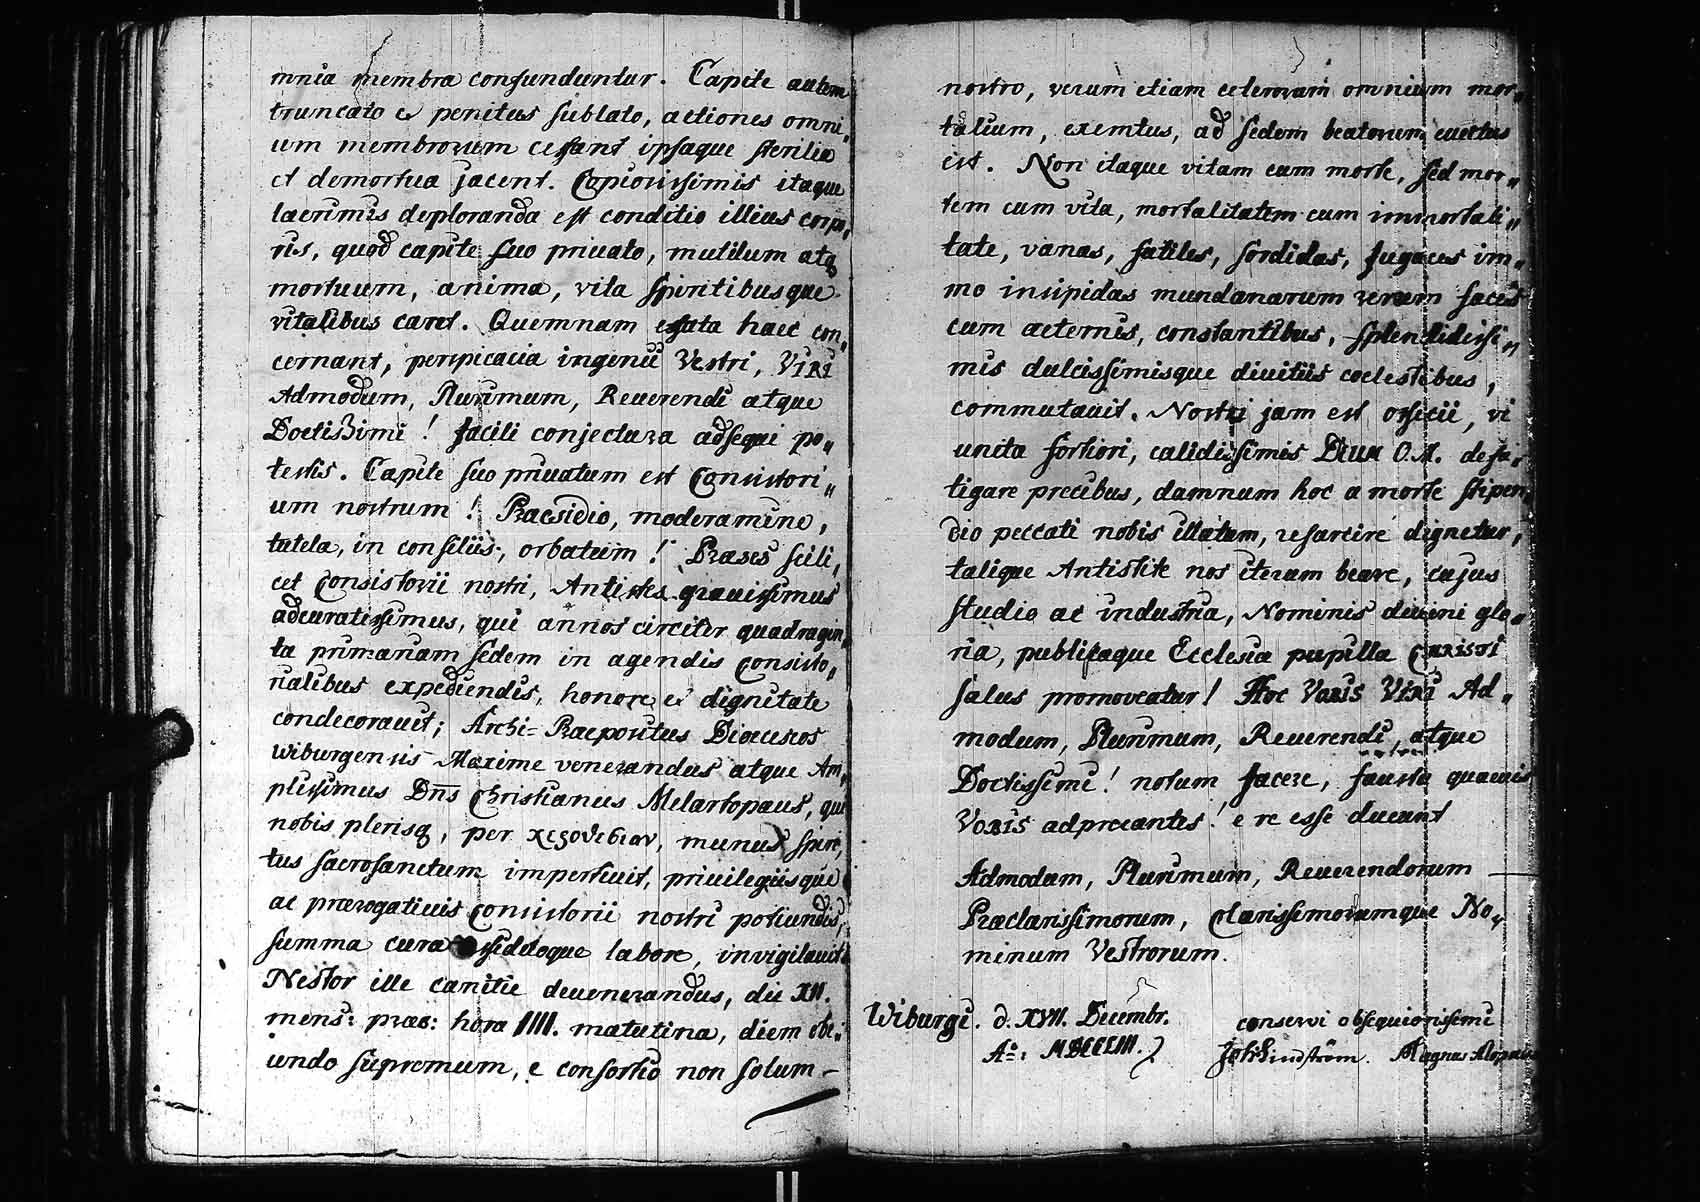 mnia membra confunduntur. Capite autem
truncato et penitus sublato, actiones omni„
um membrorum cessant ipsaque sterilia
et demortua jacent. Copiosissimis itaque
lacrumis deploranda est conditio illius corpo„
ris, quod capite suo privato, mutilum atq
mortuum, anima, vita spiritibusque
vitalibus caret. Quemnam effata haec con„
cernant, perspicacia ingenii Vestri, VIRI
Admodum, Plurimum, Reuerendi atque
Doctissimi! facili conjectura adsequi po„
testis. Capite suo priuatum est Consistori„
um nostrum! Praesidio, moderamine,
tutela, in consiliis, orbatum! Praeses scili„
cet Consistorii nostri, Antistes grauissimus
adcuratissimus, qui annos circiter quadragin„
ta primariam sedem in agendis Consisto„
rialibus expediendis, honore et dignitate
condecorauit; Archi=Praepositus Dioeceseos
Wiburgensis Maxime venerandus atque Am„
plissimus Dns Christianus Melartopaeus, qui
nobis plerisq, per χειροθεσιαν, munus spiri„
tus sacrosanctum impertiuit, priuilegiisque
ac praerogatiuis Consistorii nostri potiundis,
summa cura siddoque labore, invigilauit
Nestor ille canitie deuenerandus, die XII.
mens: praes: hora IIII. matutina, diem obe„
iundo supremum, e consortio non solum –
nostro, verum etiam ceterorum omnium mor„
talium, exemtus, ad sedem beatorum euectus
est. Non itaque vitam cum morte, sed mor„
tem cum vita, mortalitatem cum immortali„
tate, vanas, futiles, sordidas, fugaces im„
mo insipidas mundanarum rerum faces
cum aeternis, constantibus, splendidissi„
mis dulcissimisque diuitiis coelestibus,
commutauit. Nostri jam est officii, vi
unita fortiori, calidissimis Deum O.M. defa„
tigare precibus, damnum hoc a morte stipen„
dio peccati nobis illatum, resarcire dignetur,
talique Antistite nos iterum beare, cujus
studio ac industria, Nominis diuini glo„
ria, publicaque Ecclesiae pupilla CHRISTI
salus promoveatur! Hoc VOBIS VIRI Ad„
modum, Plurimum, Reuerendi atque
Doctissimi! notum facere, fausta quaeuis
VOBIS adprecantes! e re esse ducunt
Admodum, Plurimum, Reuerendorum
Praeclarissimorum, Clarissimorumque No„
minum Vestrorum.
Wiburgi. d. XVII. Decembr. conservi obsequiosissimi
Aō: MDCCLIII. Joh: Lindström. Magnus Alopaeus